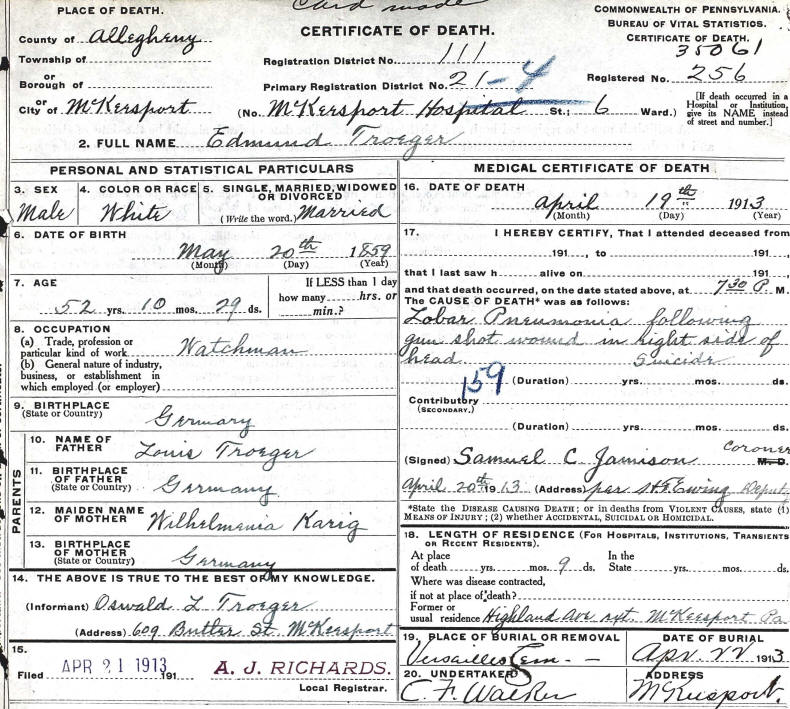 Card made
PLACE OF DEATH.
County of Allegheny
Township of
or
Borough of
or
City of McKeesport
CERTIFICATE OF DEATH.
Registration District No. 111
Primary Registration District No. 21-4
(No. McKeesport Hospital St.; 6 Ward.)
COMMONWEALTH OF PENNSYLVANIA.
BUREAU OF VITAL STATISTICS.
CERTIFICATE OF DEATH.
35061
Registered No. 256
[If death occurred in a
Hospital or Institution,
give its NAME instead
of street and number.]
2. FULL NAME Edmund Troeger
PERSONAL AND STATISTICAL PARTICULARS
3. SEX Male
4. COLOR OR RACE White
5. SINGLE, MARRIED, WIDOWED
OR DIVORCED
(Write the word.) Married
6. DATE OF BIRTH
May 20th 1859
(Month) (Day) (Year)
7. AGE
52 yrs. 10 mos. 29 ds.
If LESS than 1 day
how many hrs. or
min.?
8. OCCUPATION
(a) Trade, profession or
particular kind of work Watchman
(b) General nature of industry,
business, or establishment in
which employed (or employer)
9. BIRTHPLACE
(State or Country) Germany
PARENTS
10. NAME OF
FATHER Louis Troeger
11. BIRTHPLACE
OF FATHER
(State or Country) Germany
12. MAIDEN NAME
OF MOTHER Wilhelmenia Karig
13. BIRTHPLACE
OF MOTHER
(State or Country) Germany
14. THE ABOVE IS TRUE TO THE BEST OF MY KNOWLEDGE.
(Informant) Oswald L Troeger
(Address) 609 Butler St. McKeesport
15.
Filed APR 21 1913 191
A. J. RICHARDS.
Local Registrar.
MEDICAL CERTIFICATE OF DEATH
16. DATE OF DEATH
April 19th 1913
(Month) (Day) (Year)
17. I HEREBY CERTIFY, That I attended deceased from
191 , to 191 ,
that I last saw h alive on 191 ,
and that death occurred, on the date stated above, at 7 30 P. M.
The CAUSE OF DEATH* was as follows:
Lobar Pneumonia following
gun shot wound in right side of
head Suicide
159
(Duration) yrs. mos. ds.
Contributory
(SECONDARY.)
(Duration) yrs. mos. ds.
(Signed) Samuel C. Jamison Coroner M. D.
April 20th 1913 (Address) per H F Ewing Deputy
*State the DISEASE CAUSING DEATH; or in deaths from VIOLENT CAUSES, state (1)
MEANS OF INJURY; (2) whether ACCIDENTAL, SUICIDAL OR HOMICIDAL.
18. LENGTH OF RESIDENCE (FOR HOSPITALS, INSTITUTIONS, TRANSIENTS
OR RECENT RESIDENTS).
At place
of death yrs. mos. 9 ds.
In the
State yrs. mos. ds.
Where was disease contracted,
if not at place of death?
Former or
usual residence Highland Ave ext. McKeesport Pa
19. PLACE OF BURIAL OR REMOVAL
Versailles Cem.
DATE OF BURIAL
Apr 22 1913
20. UNDERTAKER
C. F. Walker
ADDRESS
McKeesport.